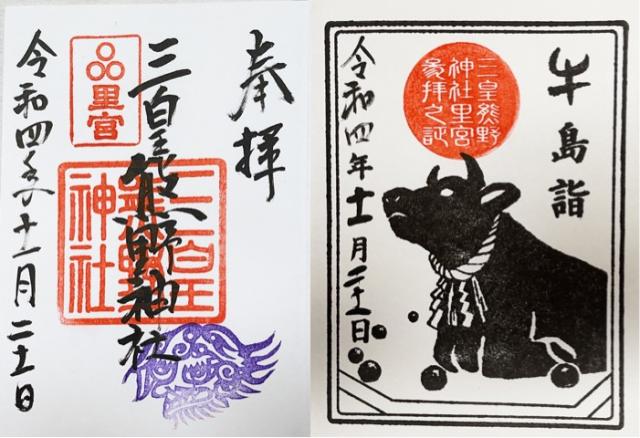 奉拝
三皇熊野神社
里宮
三皇
熊野
神社
令和四年十一月二十一日
牛島詣
三皇熊野
神社里宮
参拝之証
令和四年十一月二十一日